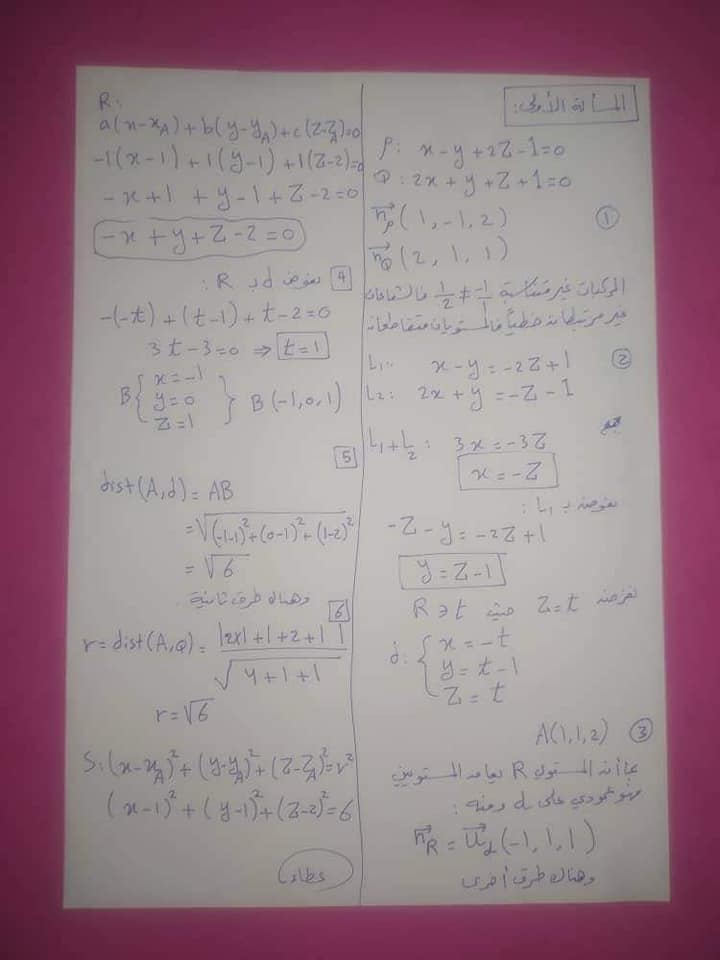 المسألة الأولى:
P: x-y+2Z-1=0
Q: 2x+y+Z+1=0
①
n⃗P (1,-1,2)
n⃗Q (2,1,1)
المركبات غير متناسبة -1/1 ≠ 1/2 فالشعاعان
غير مرتبطان خطياً فالمستويان متقاطعان
②
L1: x-y=-2Z+1
L2: 2x+y=-Z-1
نجمع
L1+L2: 3x=-3Z
x=-Z
نعوضه بـ L1:
-Z-y=-2Z+1
y=Z-1
نفرض Z=t حيث t∈R
d: { x=-t
y=t-1
Z=t
③ A(1,1,2)
بما أن المستوي R يعامد المستويين
فهو عمودي على d ومنه:
n⃗R = u⃗d (-1,1,1)
وهناك طرق أخرى
R:
a(x-xA)+b(y-yA)+c(Z-ZA)=0
-1(x-1)+1(y-1)+1(Z-2)=0
-x+1+y-1+Z-2=0
-x+y+Z-2=0
4 نعوض d بـ R:
-(-t)+(t-1)+t-2=0
3t-3=0 ⇒ t=1
B { x=-1
y=0
Z=1 } B(-1,0,1)
5
dist(A,d)=AB
=√((-1-1)²+(0-1)²+(1-2)²)
=√6
وهناك طرق ثانية.
6
r=dist(A,Q)=|2x1+1+2+1|/√(4+1+1)
r=√6
S:(x-xA)²+(y-yA)²+(Z-ZA)²=r²
(x-1)²+(y-1)²+(Z-2)²=6
عطاء